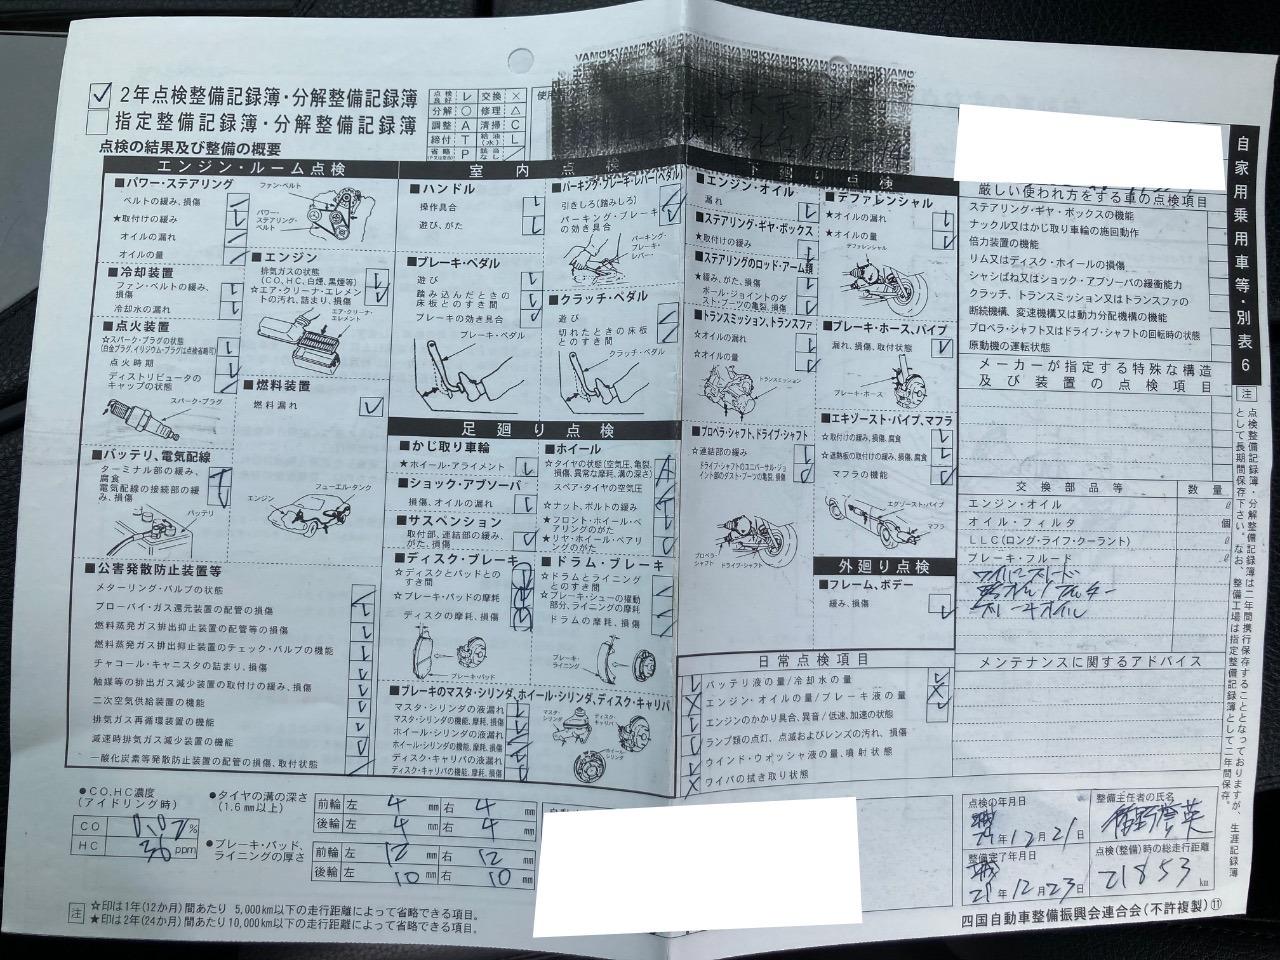 2年点検整備記録簿・分解整備記録簿
指定整備記録簿・分解整備記録簿
点検の結果及び整備の概要
点検良好 レ 交換 ×
分解 ○ 修理 △
調整 A 清掃 C
締付 T 給油(水) L
省略 P 該当なし /
エンジン・ルーム点検
■パワー・ステアリング
ベルトの緩み、損傷
★取付けの緩み
オイルの漏れ
オイルの量
ファン・ベルト
パワー・ステアリング・ベルト
■冷却装置
ファン・ベルトの緩み、損傷
冷却水の漏れ
■点火装置
☆スパーク・プラグの状態
(白金プラグ、イリジウム・プラグは点検省略可)
点火時期
ディストリビュータのキャップの状態
スパーク・プラグ
■バッテリ、電気配線
ターミナル部の緩み、腐食
電気配線の接続部の緩み、損傷
バッテリ
■エンジン
排気ガスの状態
(CO、HC、白煙、黒煙等)
☆エア・クリーナ・エレメントの汚れ、詰まり、損傷
エア・クリーナ・エレメント
■燃料装置
燃料漏れ
エンジン
フューエル・タンク
■公害発散防止装置等
メターリング・バルブの状態
ブローバイ・ガス還元装置の配管の損傷
燃料蒸発ガス排出抑止装置の配管等の損傷
燃料蒸発ガス排出抑止装置のチェック・バルブの機能
チャコール・キャニスタの詰まり、損傷
触媒等の排出ガス減少装置の取付けの緩み、損傷
二次空気供給装置の機能
排気ガス再循環装置の機能
減速時排気ガス減少装置の機能
一酸化炭素等発散防止装置の配管の損傷、取付状態
室内点検
■ハンドル
操作具合
遊び、がた
■ブレーキ・ペダル
遊び
踏み込んだときの床板とのすき間
ブレーキの効き具合
ブレーキ・ペダル
■パーキング・ブレーキ・レバー(ペダル)
引きしろ(踏みしろ)
パーキング・ブレーキの効き具合
パーキング・ブレーキ・レバー
■クラッチ・ペダル
遊び
切れたときの床板とのすき間
クラッチ・ペダル
足廻り点検
■かじ取り車輪
★ホイール・アライメント
■ショック・アブソーバ
損傷、オイルの漏れ
■サスペンション
取付部、連結部の緩み、がた、損傷
■ディスク・ブレーキ
☆ディスクとパッドとのすき間
☆ブレーキ・パッドの摩耗
ディスクの摩耗、損傷
ブレーキ・パッド
■ホイール
☆タイヤの状態(空気圧、亀裂、損傷、異常な摩耗、溝の深さ)
スペア・タイヤの空気圧
☆ナット、ボルトの緩み
★フロント・ホイール・ベアリングのがた
★リヤ・ホイール・ベアリングのがた
■ドラム・ブレーキ
☆ドラムとライニングとのすき間
☆ブレーキ・シューの摺動部分、ライニングの摩耗
ドラムの摩耗、損傷
ブレーキ・ライニング
■ブレーキのマスタ・シリンダ、ホイール・シリンダ、ディスク・キャリパ
マスタ・シリンダの液漏れ
マスタ・シリンダの機能、摩耗、損傷
ホイール・シリンダの液漏れ
ホイール・シリンダの機能、摩耗、損傷
ディスク・キャリパの液漏れ
ディスク・キャリパの機能、摩耗、損傷
マスタ・シリンダ
ディスク・キャリパ
ホイール・シリンダ
下廻り点検
■エンジン・オイル
漏れ
■ステアリング・ギヤ・ボックス
★取付けの緩み
■ステアリングのロッド・アーム類
★緩み、がた、損傷
ボール・ジョイントのダスト・ブーツの亀裂、損傷
■トランスミッション、トランスファ
☆オイルの漏れ
☆オイルの量
トランスミッション
■プロペラ・シャフト、ドライブ・シャフト
☆連結部の緩み
ドライブ・シャフトのユニバーサル・ジョイント部のダスト・ブーツの亀裂、損傷
プロペラ・シャフト
ドライブ・シャフト
■デファレンシャル
★オイルの漏れ
★オイルの量
デファレンシャル
■ブレーキ・ホース、パイプ
漏れ、損傷、取付状態
ブレーキ・ホース
■エキゾースト・パイプ、マフラ
☆取付けの緩み、損傷、腐食
☆遮熱板の取付けの緩み、損傷、腐食
マフラの機能
エグゾースト・パイプ
マフラ
外廻り点検
■フレーム、ボデー
緩み、損傷
日常点検項目
バッテリ液の量/冷却水の量
エンジン・オイルの量/ブレーキ液の量
エンジンのかかり具合、異音/低速、加速の状態
ランプ類の点灯、点滅およびレンズの汚れ、損傷
ウインド・ウォッシャ液の量、噴射状態
ワイパの拭き取り状態
厳しい使われ方をする車の点検項目
ステアリング・ギヤ・ボックスの機能
ナックル又はかじ取り車輪の旋回動作
倍力装置の機能
リム又はディスク・ホイールの損傷
シャシばね又はショック・アブソーバの緩衝能力
クラッチ、トランスミッション又はトランスファの
断続機構、変速機構又は動力分配機構の機能
プロペラ・シャフト又はドライブ・シャフトの回転時の状態
原動機の運転状態
メーカーが指定する特殊な構造
及び装置の点検項目
交換部品等 数量
エンジン・オイル ℓ
オイル・フィルタ 個
LLC(ロング・ライフ・クーラント) ℓ
ブレーキ・フルード ℓ
ブレーキオイル
メンテナンスに関するアドバイス
自家用乗用車等・別表6
注 点検整備記録簿・分解整備記録簿は二年間携行保存することとなっておりますが、生涯記録簿
として長期間保存下さい。なお、整備工場は指定整備記録簿として二年間保存。
●CO、HC濃度
(アイドリング時)
CO 0.07 %
HC 36 ppm
●タイヤの溝の深さ
(1.6mm以上)
前輪 左 4 mm 右 4 mm
後輪 左 4 mm 右 4 mm
●ブレーキ・パッド、ライニングの厚さ
前輪 左 12 mm 右 12 mm
後輪 左 10 mm 右 10 mm
点検の年月日
平成 21年12月21日
整備主任者の氏名
整備完了年月日
平成 21年12月23日
点検(整備)時の総走行距離
21853 km
注 ☆印は1年(12か月)間あたり 5,000km以下の走行距離によって省略できる項目。
★印は2年(24か月)間あたり10,000km以下の走行距離によって省略できる項目。
四国自動車整備振興会連合会(不許複製)⑪